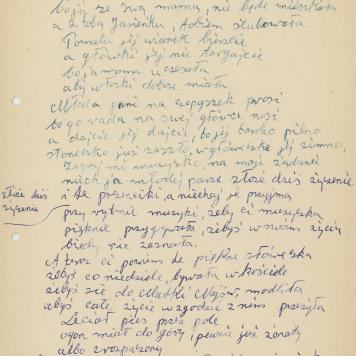 boją ze swą mamą, nie będę mieszkała
a z tobą Jasieńku, bokiem ślubowała
Pomału jej wianek bierzcie
a główki jej nie targajcie
bo ją mama uczesała
aby włoski dobre miała
Młoda pani na czepyszek prosi
bo go rada na swej główce nosi
a dajcie jej dajcie, bo jej bardzo pilno
słoneczko już zaszło, w główeńkę jej zimno,
Zagraj mi muzyczko, na moje żądanie
niech ja młodej parze złożę dziś życzenie
Złożę dziś życzenie
i te przenoski, a niechaj je przyjmą
przy rytmie muzyki, żeby ci muzyczka
pięknie przygrywała, żebyś w swoim życiu
biedy nie zaznała.
A teraz ci powiem te piękne słóweczka
żebyś co niedziele, bywała w kościele
żebyś się do Matki Najśw, modliła
abyś całe życie w zgodzie z nim przeżyła
Leciał pies przez pole
ogon miał do góry, pewnie już żonaty
albo zaręczony